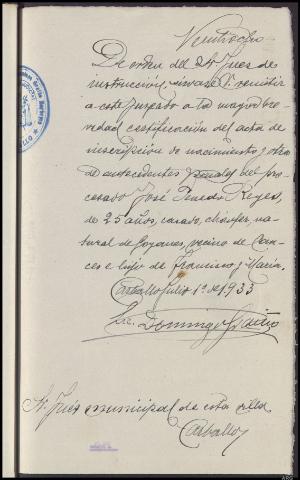 Veintiocho
De orden del Sr Juez de
instrucción, sírvase V. remitir
a este Juzgado a la mayor bre-
vedad certificación del acta de
inscripción de nacimiento y otra
de antecedentes penales del pro-
cesado José Penedo Reyes,
de 25 años, casado, chófer, na-
tural de Goyanes, vecino de
ces e hijo de Francisco y María.
Carballo Julio 1º de 1933
Domingo
Sr. Juez municipal de esta villa
Carballo
ARG